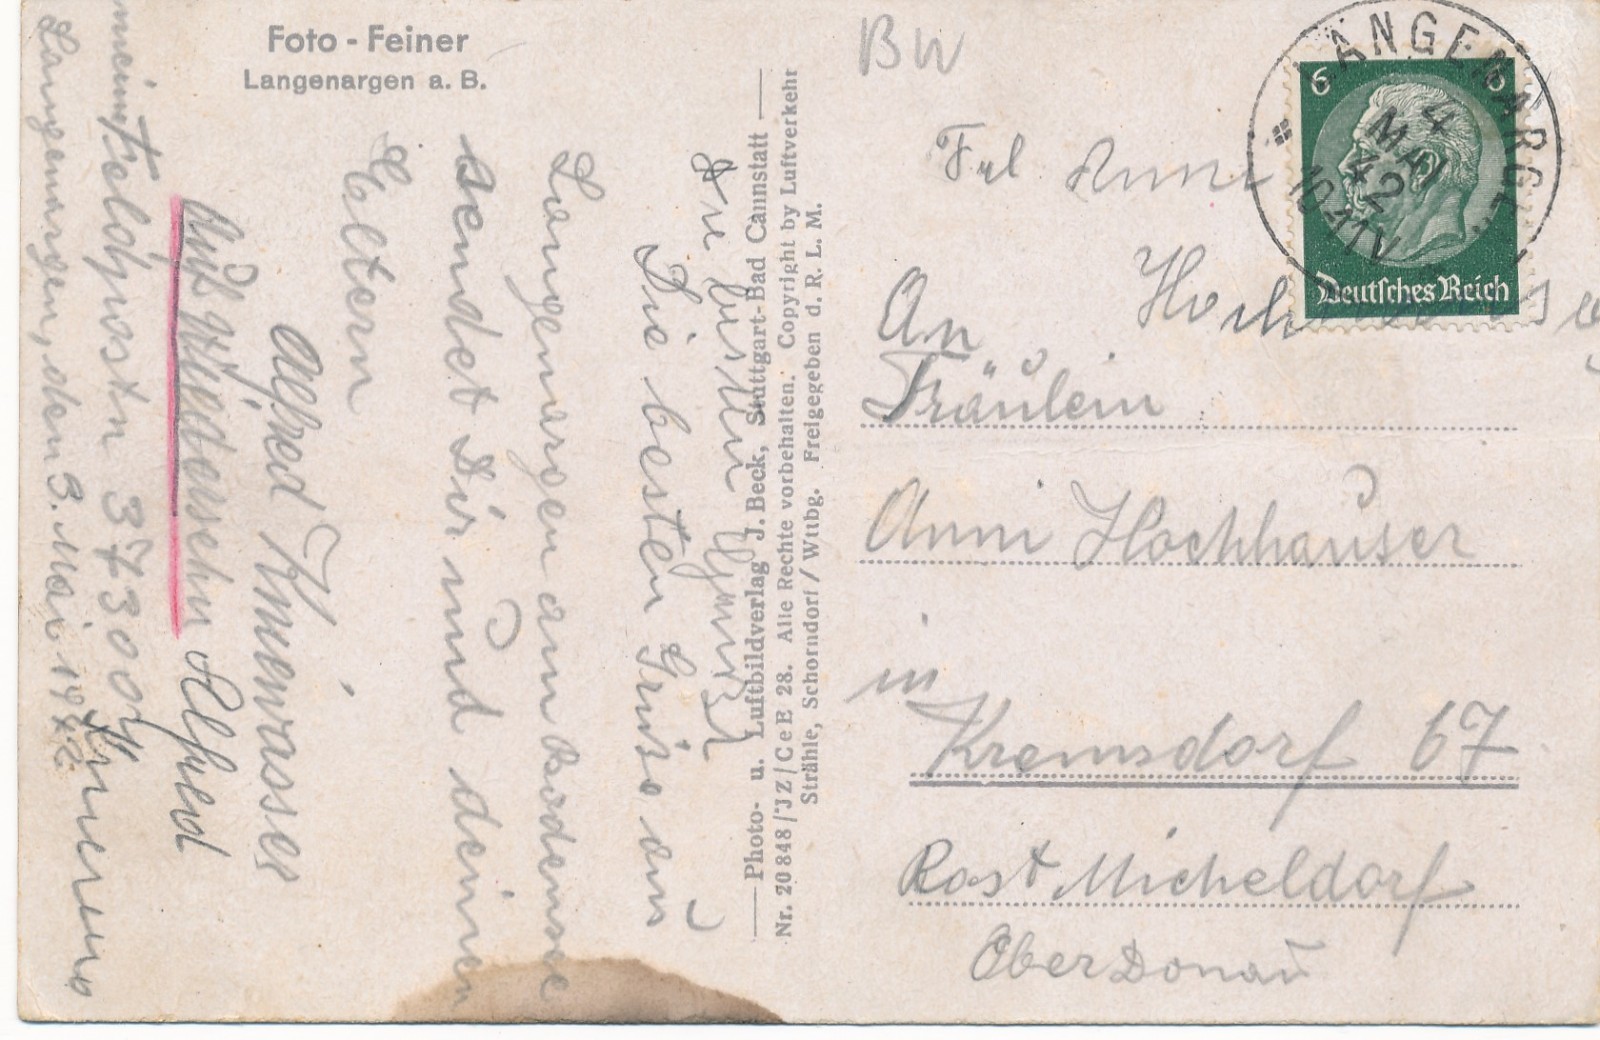 Foto - Feiner
Langenargen a. B.
BW
LANGENARGEN
4
MAI
42
10-11V
6 6
Deutsches Reich
Frl Anni
An
Fräulein
Anni Hochhauser
in
Kremsdorf 67
Post Micheldorf
Oberdonau
Photo- u. Luftbildverlag J. Beck, Stuttgart-Bad Cannstatt
Nr. 20848/JZ/CeE 28. Alle Rechte vorbehalten. Copyright by Luftverkehr
Strähle, Schorndorf / Wttbg. Freigegeben d. R. L. M.
Langenargen, den 3. Mai 1942
meine Feldpostn 37300
Die besten Grüße aus
Langenargen am Bodensee
sendet Dir und deinen
Eltern
Alfred
Auf Wiedersehn Alfred